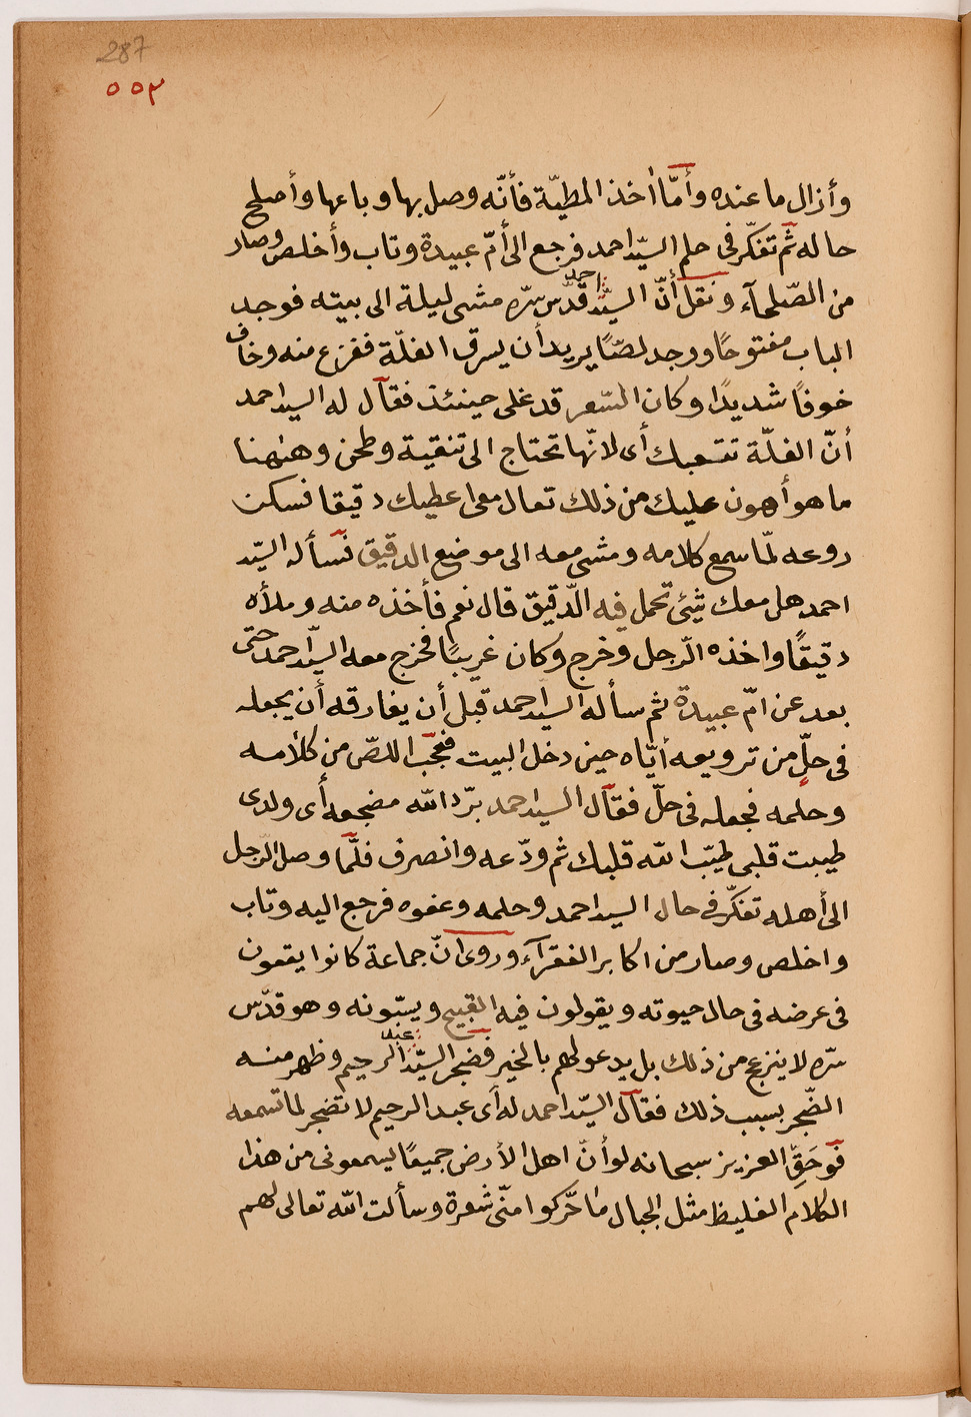 287
٥٥٣
وأزال ما عنده وأمّا أخذ المطيّة فأنّه وصل بها وباعها وأصلح
حاله ثم تفكّر فى حلم السيّد احمد فرجع الى أمّ عبيدة وتاب وأخلص وصار
من الصّلحآء ونقل أنّ السيّد احمد قدّس سرّه مشى ليلة الى بيته فوجد
الباب مفتوحًا ووجد لصًّا يريد أن يسرق الغلّة ففزع منه وخاف
خوفًا شديدًا وكان السّعر قد غلى حينئذ فقآل له السيد احمد
أنّ الغلّة تتعبك أى لانّها تحتاج الى تنقية وطحن وههنا
ما هو أهون عليك من ذلك تعال معى اعطيك دقيقا فسكن
روعه لمّا سمع كلامه ومشى معه الى موضع الدقيق فسأله السيّد
احمد هل معك شئ تحمل فيه الدّقيق قال نعم فأخذه منه وملأه
دقيقًا واخذه الرّجل وخرج وكان غريبًا فخرج معه السيّد احمد حتى
بعد عن امّ عبيدة ثم سأله السيد احمد قبل أن يفارقه أن يجعله
فى حلٍّ من ترويعه أيّاه حين دخل البيت فعجّب اللصّ من كلامه
وحلمه فجعله فى حلّ فقآل السيد احمد برّد الله مضجعه أى ولدى
طيبت قلبى طيّب الله قلبك ثم ودّعه وانصرف فلمّا وصل الرّجل
الى أهله تفكّر فى حال السيد احمد وحلمه وعفوه فرجع اليه وتاب
واخلص وصار من اكابر الفقرآء وروى انّ جماعة كانوا يقعون
فى عرضه فى حال حيوته ويقولون فيه القبيح ويسبّونه وهو قدّس
سرّه لا ينزعج من ذلك بل يدعو لهم بالخير فضجر السيّد عبد الرحيم وظهر منه
الضّجر بسبب ذلك فقآل السيّد احمد له أى عبد الرحيم لا تضجر لما تسمعه
فوحَقِّ العزيز سبحانه لو أنّ اهل الأرض جميعًا يسمعونى من هذا
الكلام الغليظ مثل الجبال ما حرّكوا منّى شعرة وسألت الله تعالى لهم